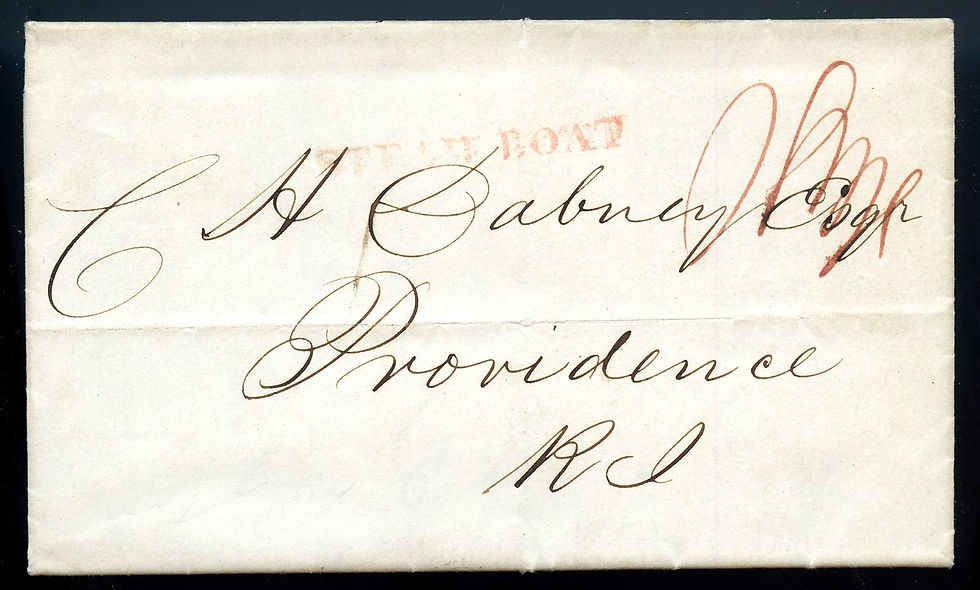 STEAM BOAT
C H Dabney Esqr
Providence
R I